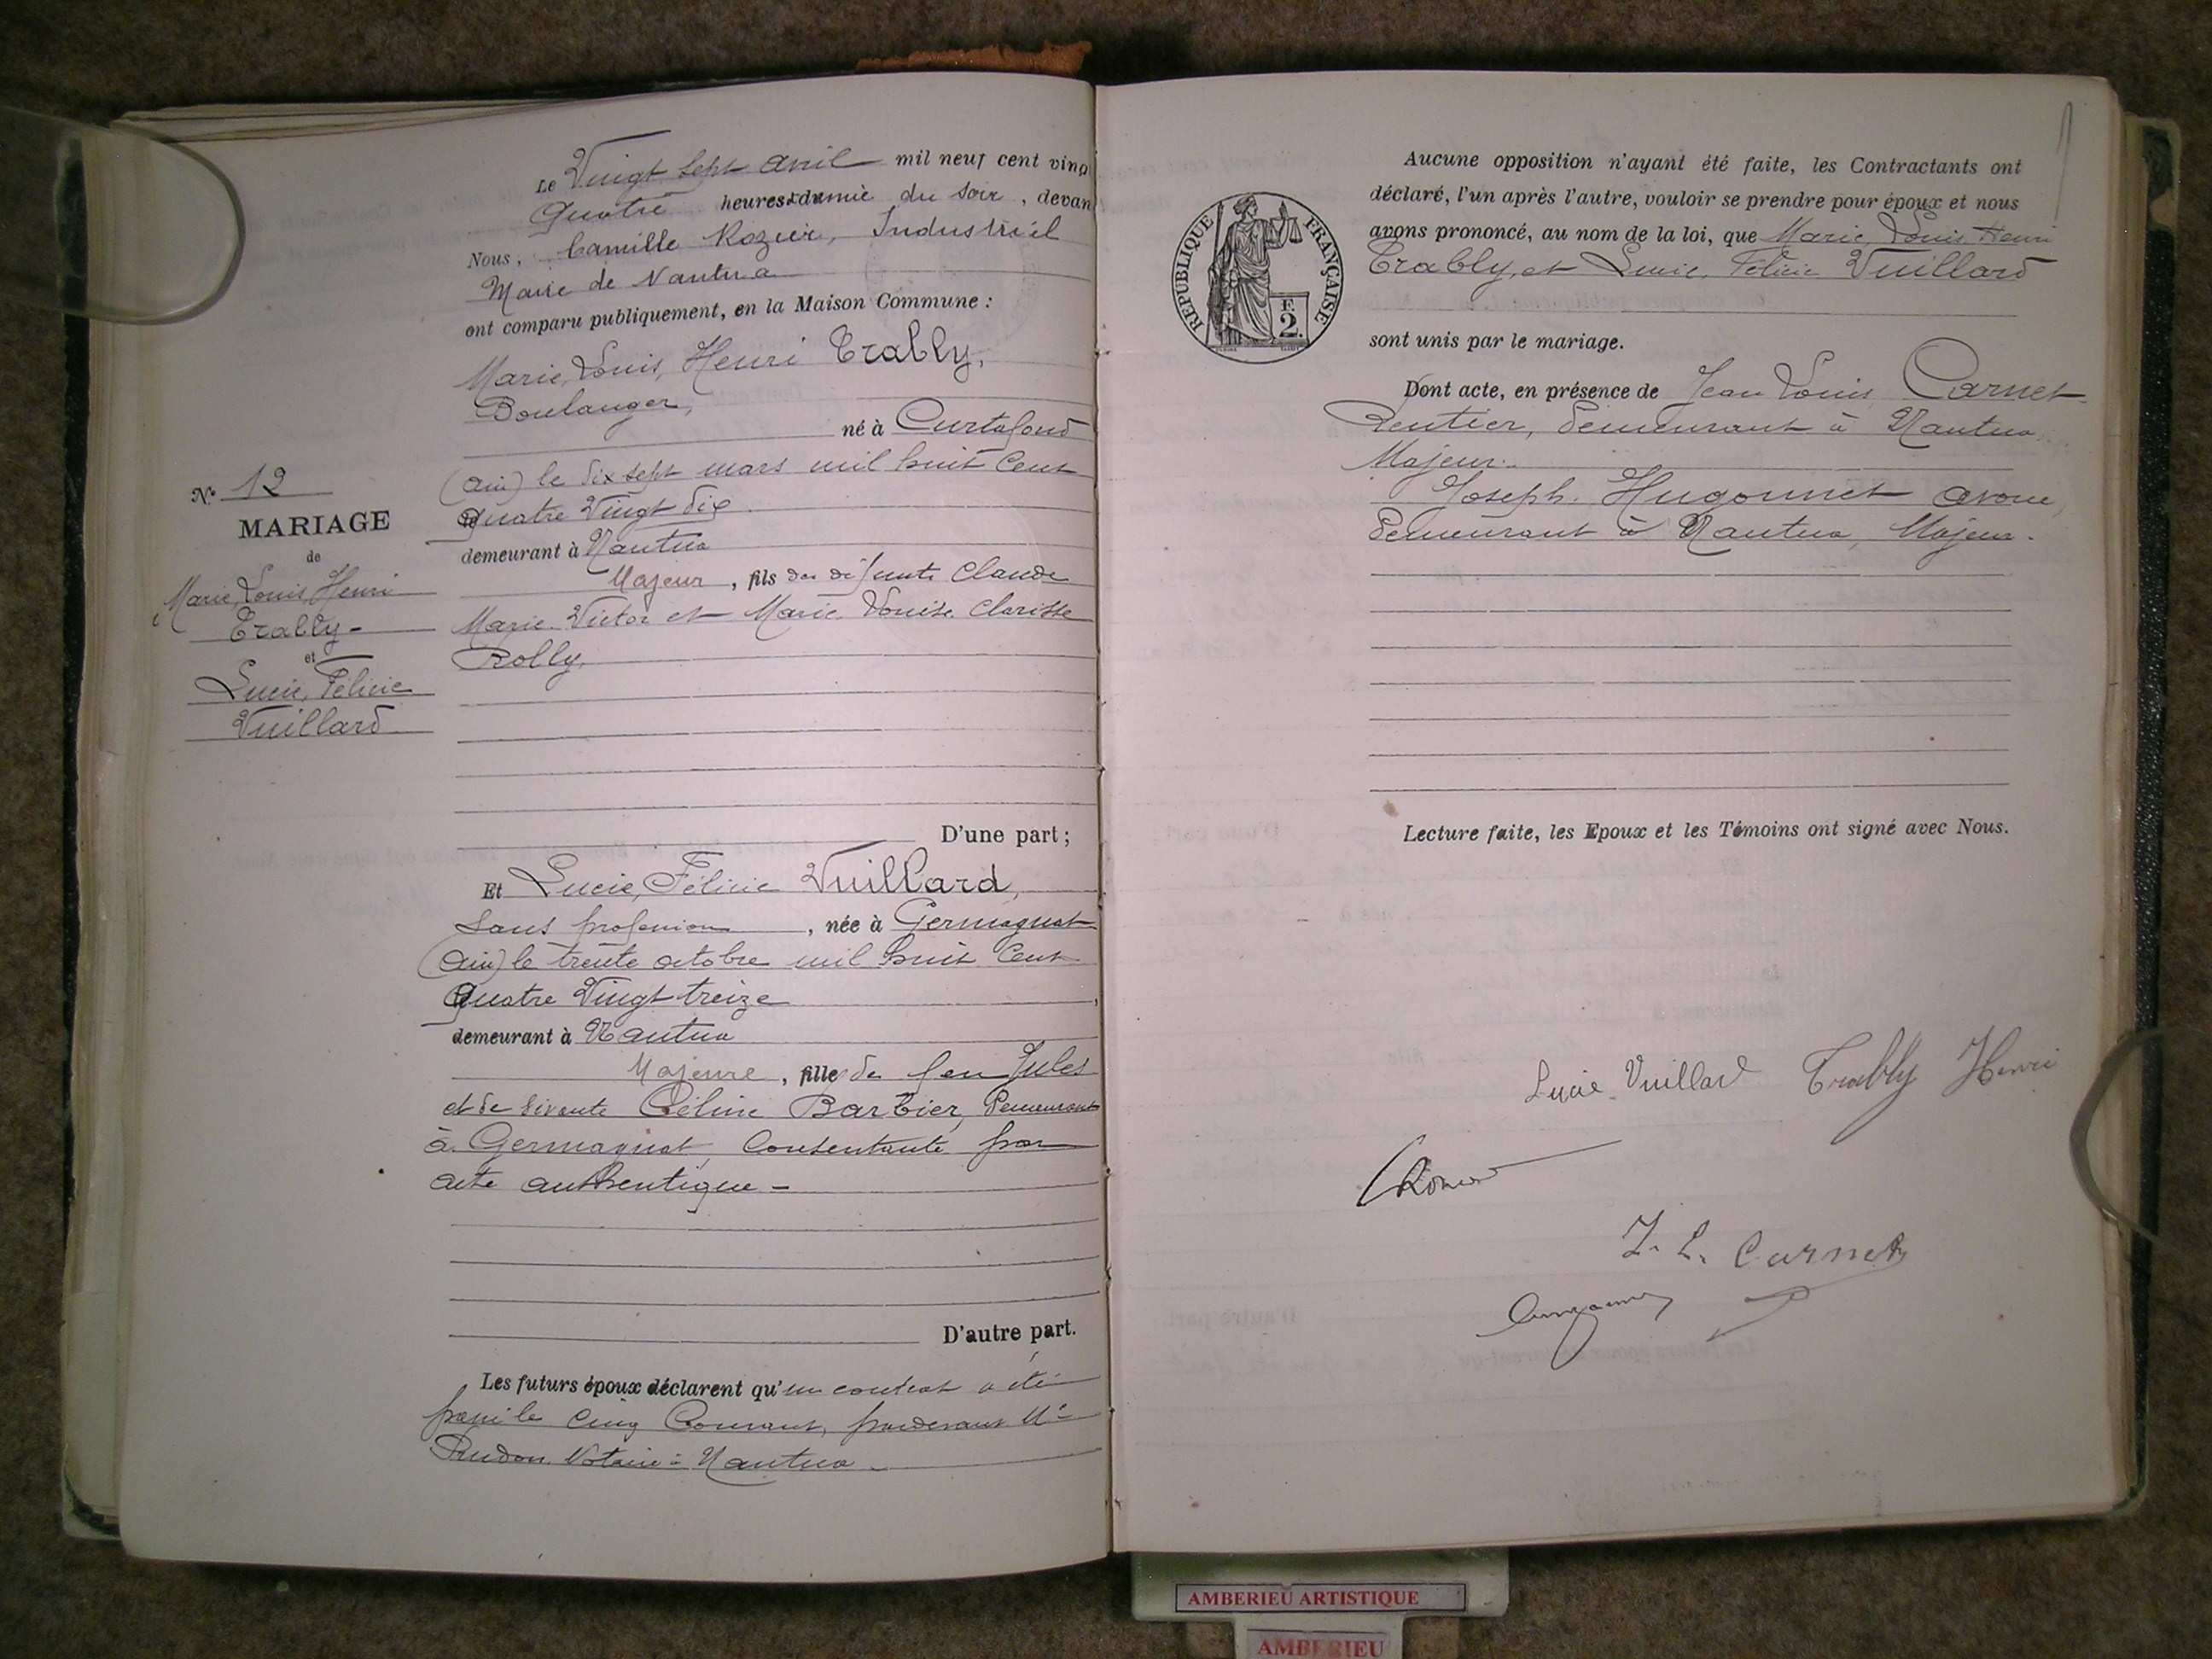 Le Vingt sept avril mil neuf cent vingt
Quatre heures & demie du soir, devan
Nous, Camille Rozier, Industriel
Maire de Nantua
ont comparu publiquement, en la Maison Commune :
Marie, Louis, Henri Trably,
Boulanger,
né à Curtafond
(Ain) le dix sept mars mil huit cent
quatre Vingt dix
demeurant à Nantua
Majeur, fils des défunts Claude
Marie Victor et Marie Louise Clarisse
Rolly.
D'une part ;
N° 12
MARIAGE
de
Marie, Louis, Henri
Trably -
et
Lucie, Félicie
Vuillard
Et Lucie, Félicie Vuillard,
sans profession, née à Germagnat
(Ain) le trente octobre mil huit Cent
quatre Vingt treize
demeurant à Nantua
Majeure, fille de feu Jules
et de vivante Céline Barbier, Demeurant
à Germagnat, Consentante par
acte authentique -
D'autre part.
Les futurs époux déclarent qu'un contrat a été
passé le cinq Courant, pardevant Me
Rudon Notaire à Nantua -
Aucune opposition n'ayant été faite, les Contractants ont
déclaré, l'un après l'autre, vouloir se prendre pour époux et nous
avons prononcé, au nom de la loi, que Marie, Louis Henri
Trably, et Lucie, Félicie Vuillard
sont unis par le mariage.
REPUBLIQUE FRANÇAISE
F.
2.
Dont acte, en présence de Jean Louis Carnet
Rentier, demeurant à Nantua,
Majeur.
Joseph Hugonnet avoué,
demeurant à Nantua, Majeur.
Lecture faite, les Epoux et les Témoins ont signé avec Nous.
Lucie Vuillard Trably Henri
J. L. Carnet
AMBERIEU ARTISTIQUE
AMBERIEU